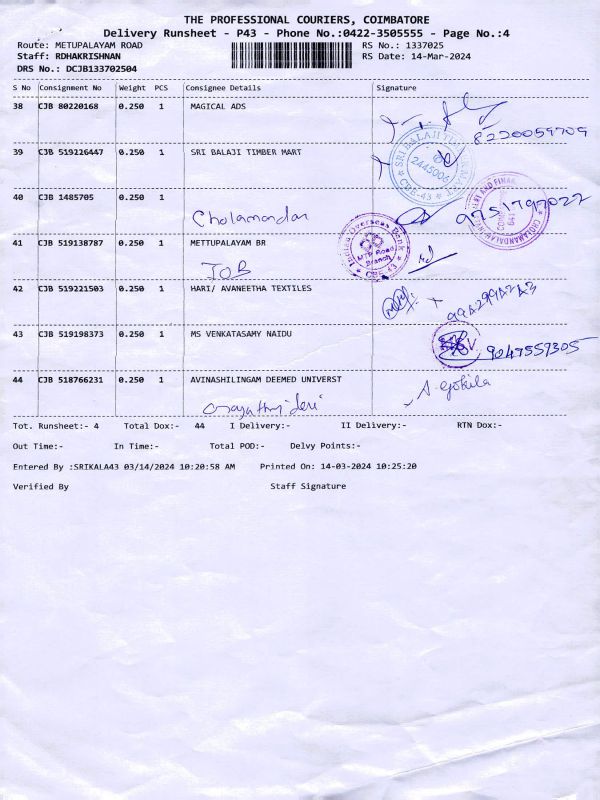 THE PROFESSIONAL COURIERS, COIMBATORE
Delivery Runsheet - P43 - Phone No.:0422-3505555 - Page No.:4
Route: METUPALAYAM ROAD RS No.: 1337025
Staff: RDHAKRISHNAN RS Date: 14-Mar-2024
DRS No.: DCJB133702504
S No Consignment No Weight PCS Consignee Details Signature
38 CJB 80220168 0.250 1 MAGICAL ADS
8220059709
39 CJB 519226447 0.250 1 SRI BALAJI TIMBER MART
SRI BALAJI TIMBER
2445006
CBE-43
40 CJB 1485705 0.250 1
Cholamandar 9751797027
41 CJB 519138787 0.250 1 METTUPALAYAM BR
IOB
Indian Overseas Bank
MTP Road
Branch
CBE-43
42 CJB 519221503 0.250 1 HARI/ AVANEETHA TEXTILES
43 CJB 519198373 0.250 1 MS VENKATASAMY NAIDU
9047557305
44 CJB 518766231 0.250 1 AVINASHILINGAM DEEMED UNIVERST
A. gokila
Tot. Runsheet:- 4 Total Dox:- 44 I Delivery:- II Delivery:- RTN Dox:-
Out Time:- In Time:- Total POD:- Delvy Points:-
Entered By :SRIKALA43 03/14/2024 10:20:58 AM Printed On: 14-03-2024 10:25:20
Verified By Staff Signature